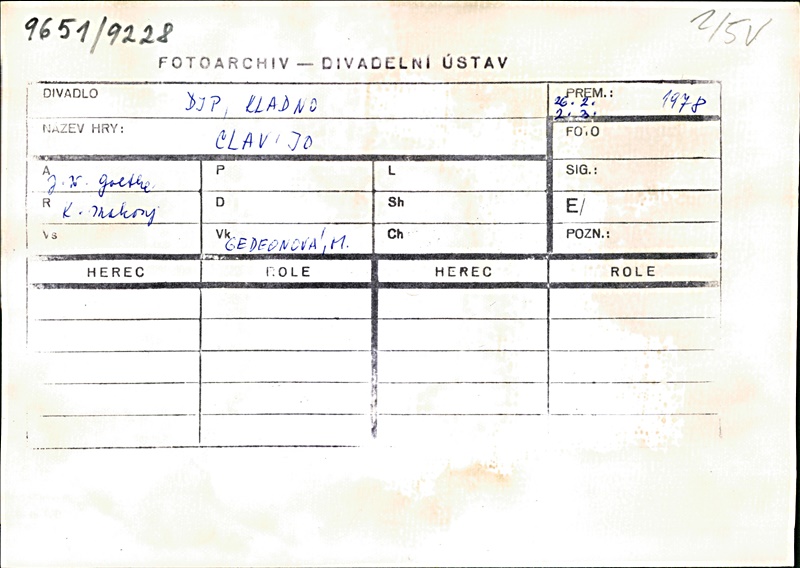 9651/9228
2/5V
FOTOARCHIV — DIVADELNÍ ÚSTAV
DIVADLO DJP, KLADNO
PREM.: 26. 2. 1978
2. 3.
NÁZEV HRY: CLAVIJO
FOTO
A J. W. Goethe
P
L
SIG.:
R K.
D
Sh
E/
Vs
Vk GEDEONOVÁ, M.
Ch
POZN.:
HEREC ROLE HEREC ROLE